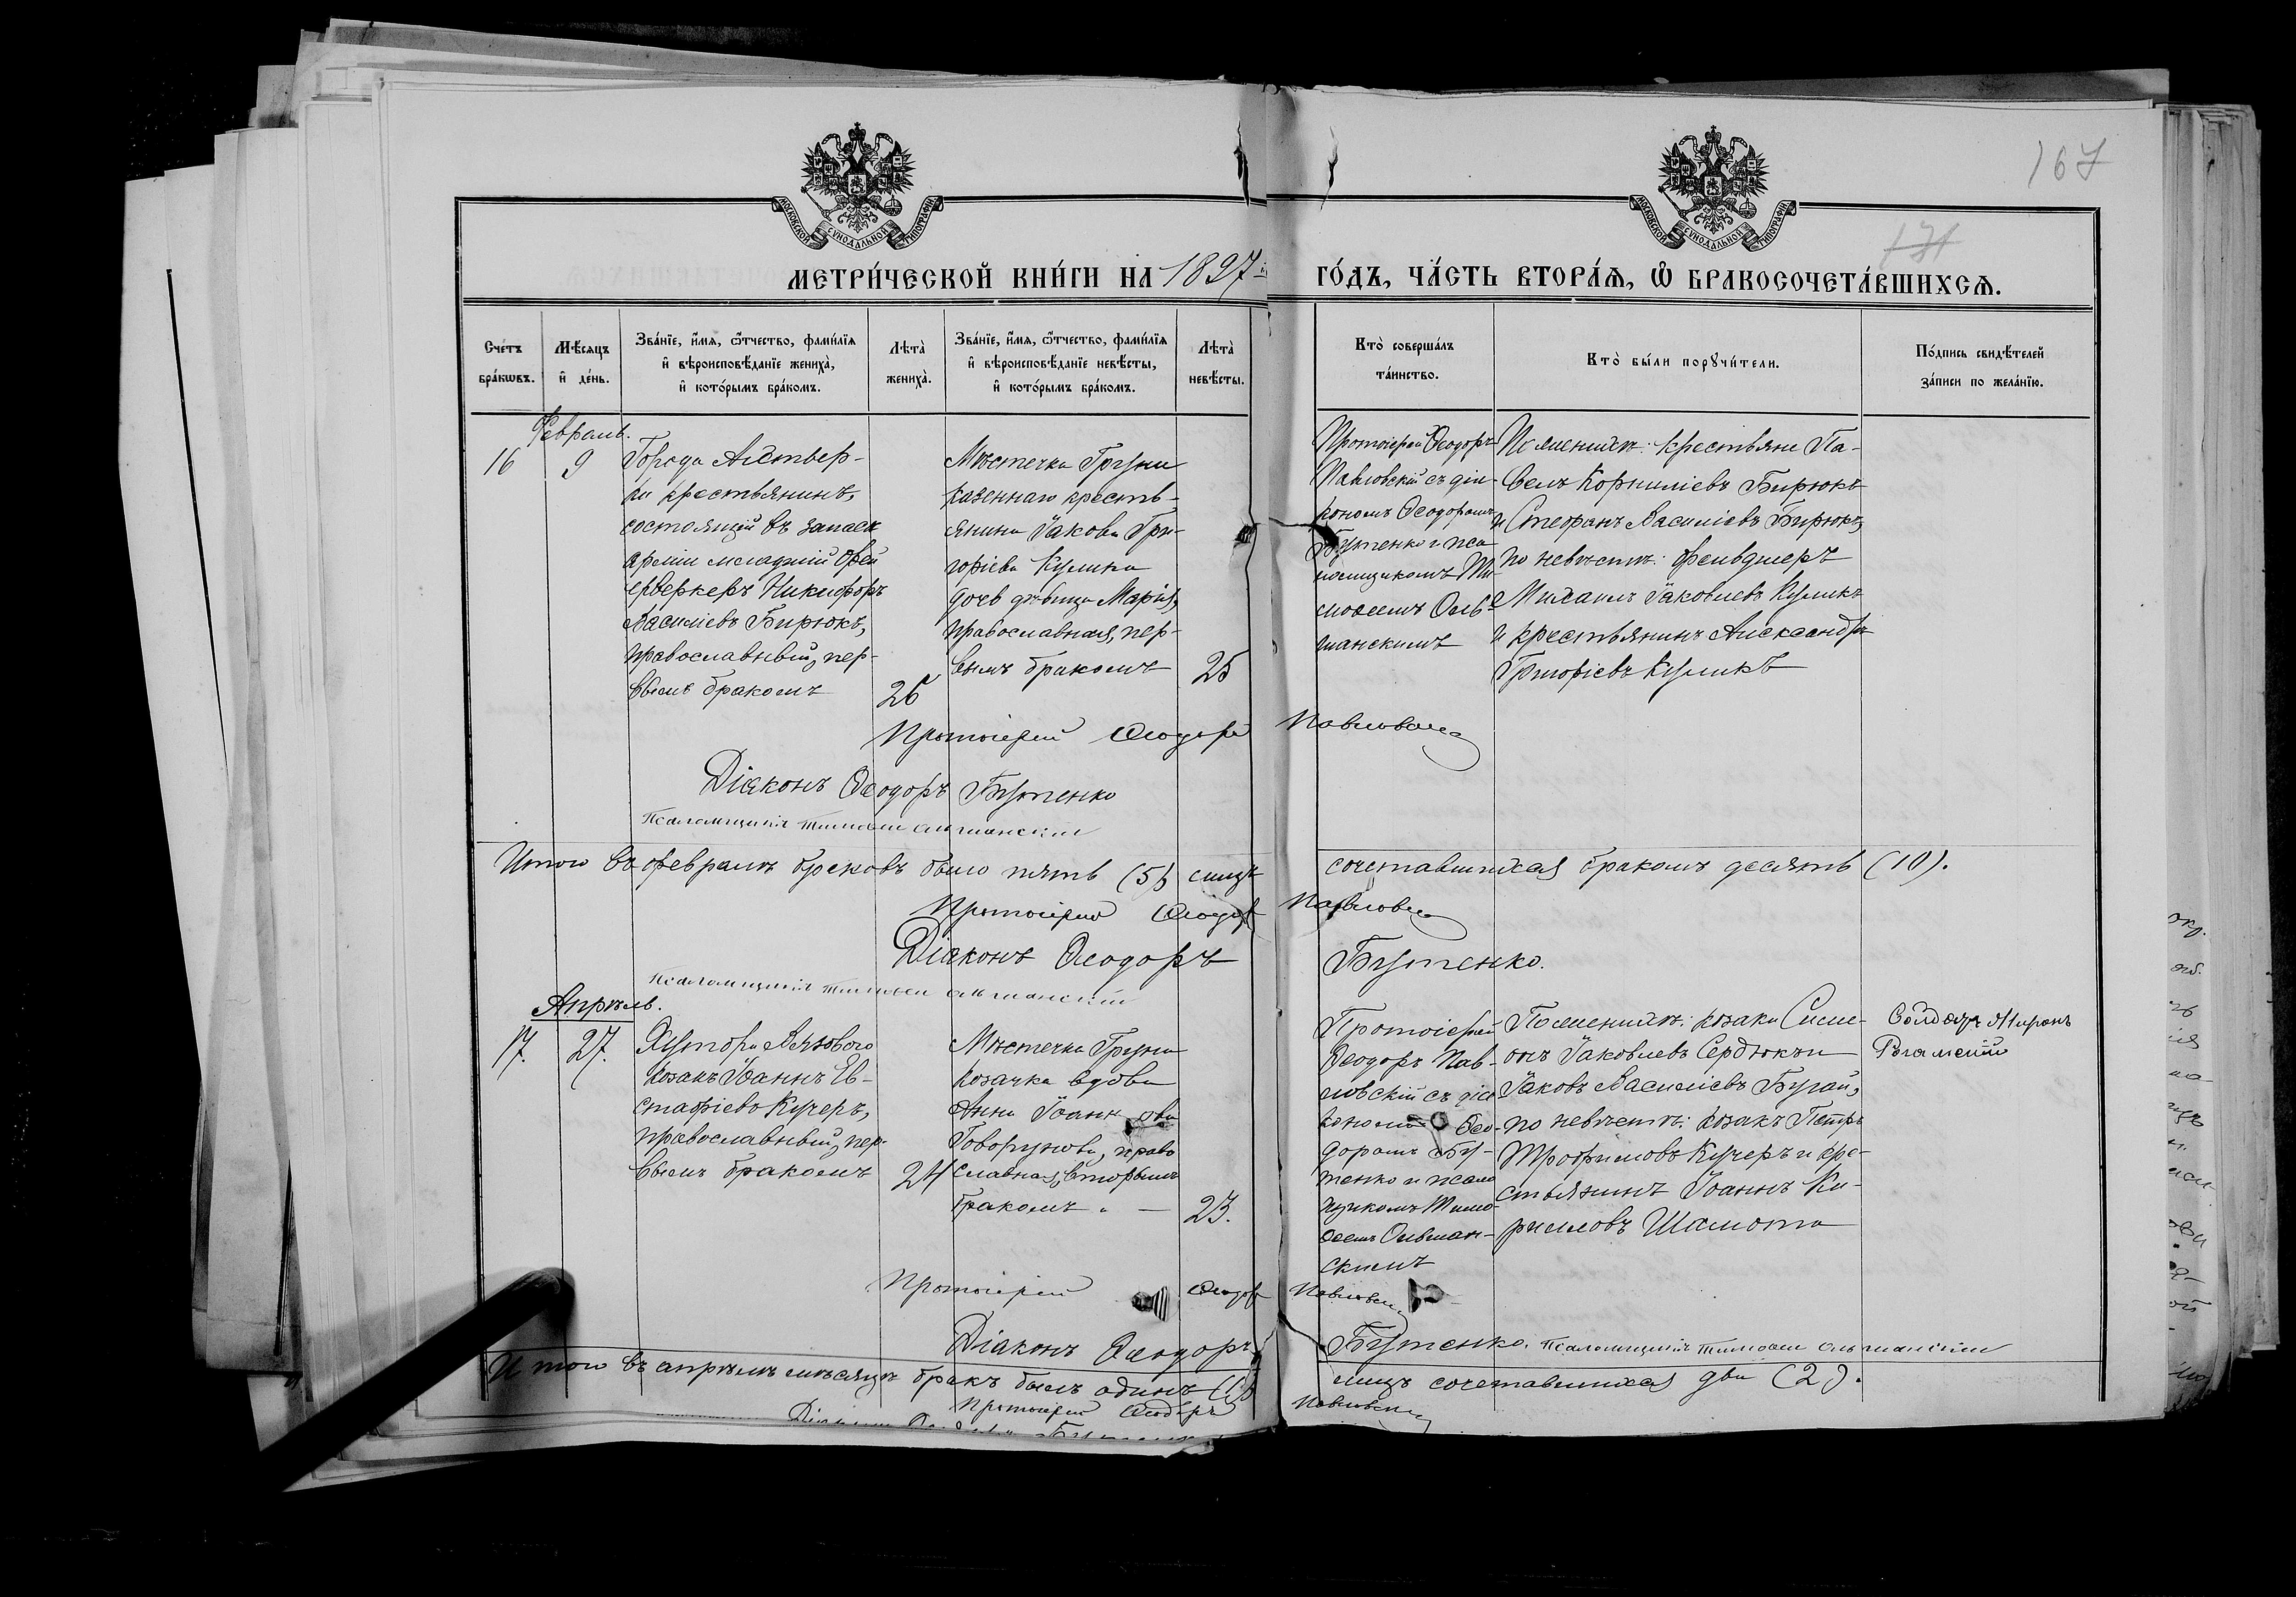 167
171
МОСКОВСКОЙ СѴНОДАЛЬНОЙ ТИПОГРАФІИ
МОСКОВСКОЙ СѴНОДАЛЬНОЙ ТИПОГРАФІИ
МЕТРИ́ЧЕСКОЙ КНИ́ГИ НА 1897
ГО́ДЪ, ЧА́СТЬ ВТОРА́Ѧ, Ѡ БРАКОСОЧЕТА́ВШИХСѦ.
Сче́тъ
бра́кѡвъ.
Мѣ́сѧцъ
и҆ де́нь.
Зва́нїе, и҆́мѧ, ѻ҆́тчество, фами́лїѧ
и҆ вѣроисповѣ́данїе жениха̀,
и҆ кото́рымъ бра́комъ.
Лѣта̀
жениха̀.
Зва́нїе, и҆́мѧ, ѻ҆́тчество, фами́лїѧ
и҆ вѣроисповѣ́данїе невѣ́сты,
и҆ кото́рымъ бра́комъ.
Лѣта̀
невѣ́сты.
Кто̀ соверша́лъ
та́инство.
Кто̀ бы́ли порꙋчи́тели.
По́дпись свидѣ́телей
за́писи по жела́нїю.
Февраль.
16
9
Города
ки крестьянинъ,
состоящій въ запасѣ
арміи младшій фей
ерверкеръ Никифоръ
Василіевъ Бирюкъ,
православный, пер-
вымъ бракомъ
26
Мѣстечка Груни
казеннаго кресть-
янина Іакова Гри-
горіева Кулика
дочь дѣвица Марія,
православная, пер-
вымъ бракомъ
25
Протоіерей Ѳеодоръ
Павловскій съ діа-
кономъ Ѳеодоромъ
Бутенко и пса
ломщикомъ Ти-
моѳеемъ Оль-
шанскимъ
По женихѣ: крестьяне Па-
велъ Корниліевъ Бирюкъ
и Стефанъ Василіевъ Бирюкъ,
по невѣстѣ: фельдшеръ
Михаилъ Іаковлевъ Куликъ
и крестьянинъ Александръ
Григоріевъ Куликъ
Протоіерей Ѳеодоръ Павловскій
Діаконъ Ѳеодоръ Бутенко
Псаломщикъ Тимоѳей Ольшанскій
Итого въ февралѣ браковъ было пять (5) лицъ сочетавшихся бракомъ десять (10).
Протоіерей Ѳеодоръ Павловскій
Діаконъ Ѳеодоръ Бутенко.
Псаломщикъ Тимоѳей Ольшанскій
Апрѣль.
17.
27.
Хутора Вязового
козакъ Іоаннъ Ев-
стафіевъ Кучеръ,
православный, пер-
вымъ бракомъ
24
Мѣстечка Груни
козачка вдова
Анна Іоанн ова
Говорунова, право
славная, вторымъ
бракомъ
23.
Протоіерей
Ѳеодоръ Пав-
ловскій съ діа
кономъ Ѳео-
доромъ Бу-
тенко и псало
мщикомъ Тимо-
ѳеемъ Ольшан-
скимъ
По женихѣ: козаки Симе-
онъ Іаковлевъ Сердюкъ и
Іаковъ Василіевъ Бугай,
по невѣстѣ: козакъ Петръ
Трофимовъ Кучеръ и кре-
стьянинъ Іоаннъ Ки-
рилловъ Шамота
Солдатъ Миронъ
Протоіерей Ѳеодоръ Павловскій
Діаконъ Ѳеодоръ Бутенко. Псаломщикъ Тимоѳей Ольшанскій
Итого въ апрѣлѣ мѣсяцѣ бракъ былъ одинъ (1) лицъ сочетавшихся два (2).
Протоіерей Ѳеодоръ Павловскій